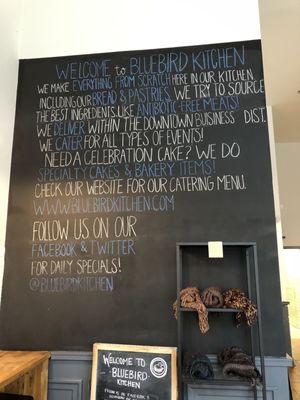 WELCOME to BLUEBIRD KITCHEN
WE MAKE EVERYTHING FROM SCRATCH HERE IN OUR KITCHEN,
INCLUDING OUR BREAD & PASTRIES. WE TRY TO SOURCE
THE BEST INGREDIENTS, LIKE ANTIBIOTIC-FREE MEATS!
WE DELIVER WITHIN THE DOWNTOWN BUISNESS DIST.
WE CATER FOR ALL TYPES OF EVENTS!
NEED A CELEBRATION CAKE? WE DO
SPECIALTY CAKES & BAKERY ITEMS!
CHECK OUR WEBSITE FOR OUR CATERING MENU.
WWW.BLUEBIRDKITCHEN.COM
FOLLOW US ON OUR
FACEBOOK & TWITTER
FOR DAILY SPECIALS!
@BLUEBIRDKITCHEN
WELCOME TO
-BLUEBIRD-
KITCHEN